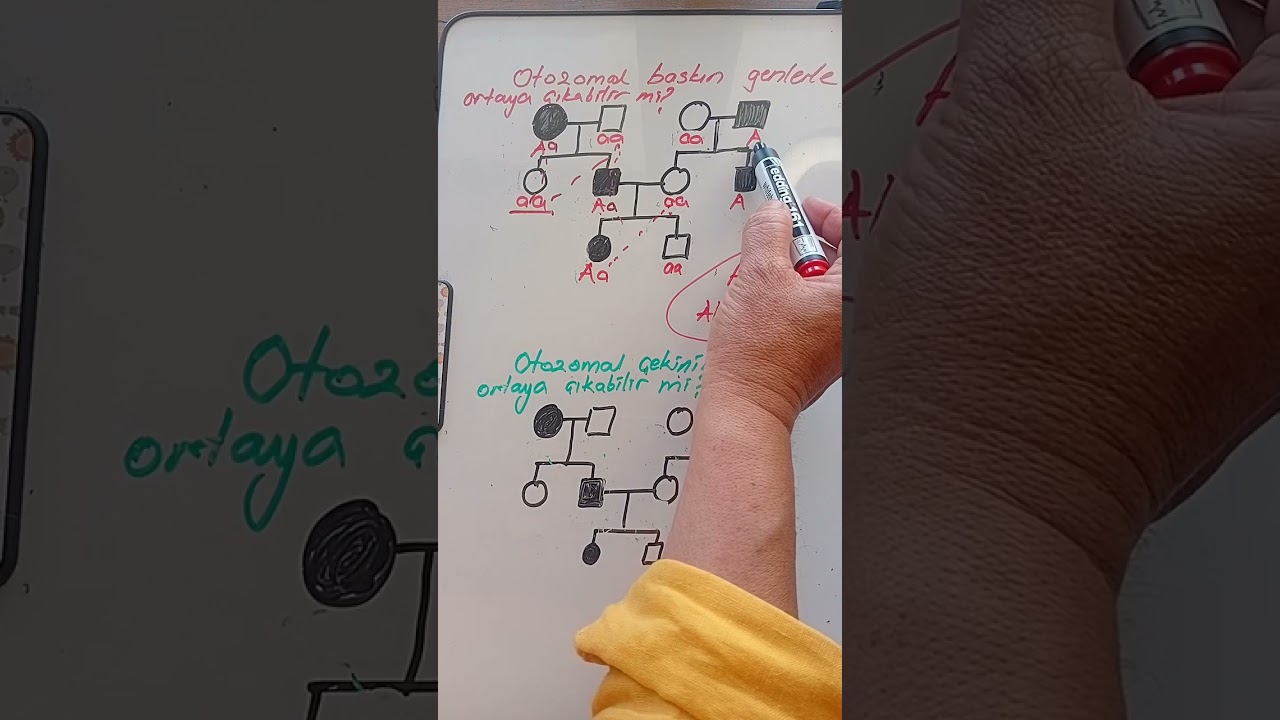 Otozomal baskın genlerle
ortaya çıkabilir mi?
Aa aa aa A
aa Aa aa A
Aa aa
Otozomal çekini
ortaya çıkabilir mi?
edding 361